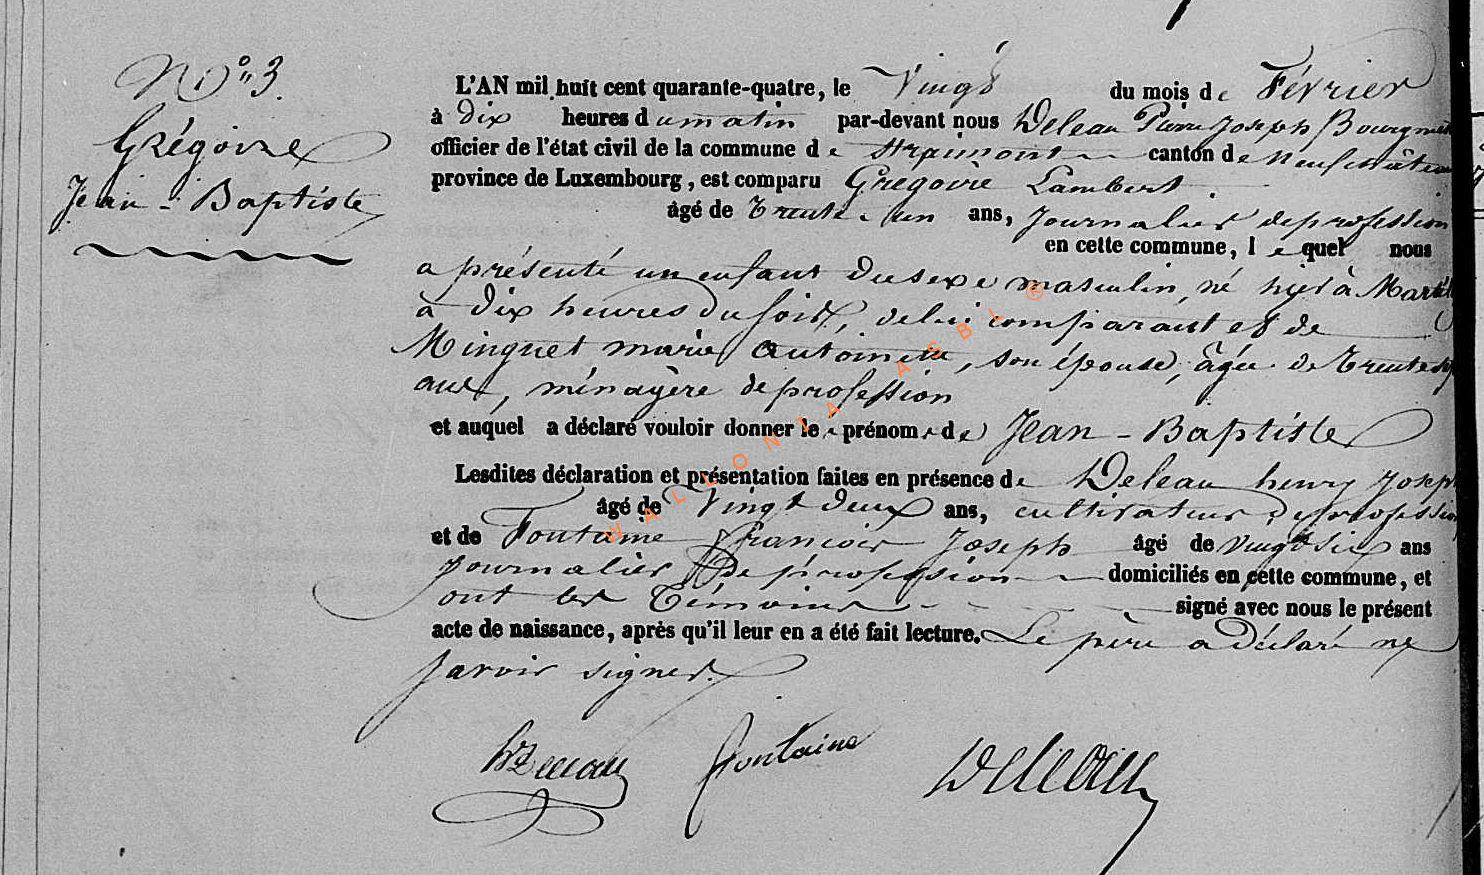 N° 3.
Grégoire
Jean-Baptiste
L'AN mil huit cent quarante-quatre, le Vingt du mois de Février
à dix heures du matin par-devant nous Deleau Pierre Joseph Bourgmest
officier de l'état civil de la commune de Straimont canton de Neufchâteau
province de Luxembourg, est comparu Grégoire Lambert.
âgé de Trente un ans, Journalier de profession
en cette commune, lequel nous
a présenté un enfant du sexe masculin, né hier à Martil
à dix heures du soir, de lui comparant et de
Minguet marie Antoinette, son épouse, âgée de Trente
ans, ménagère de profession
et auquel a déclaré vouloir donner le prénom de Jean-Baptiste
Lesdites déclaration et présentation faites en présence de Deleau henry Joseph
âgé de Vingt deux ans, cultivateur de profession
et de Fontaine françois Joseph âgé de vingt six ans
Journalier de profession domiciliés en cette commune, et
ont les Témoins signé avec nous le présent
acte de naissance, après qu'il leur en a été fait lecture. Le père a déclaré ne
savoir signer.
fontaine
Deleau
WALLONIA ASBL ®